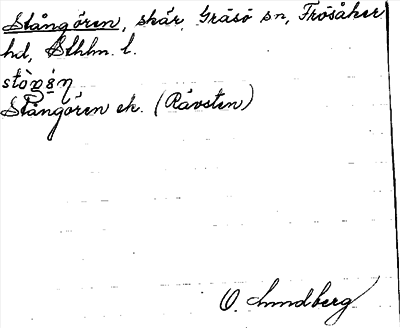 Stångören, skär, Gräsö sn, Frösåker
hd, Sthlm. l.
Stångören ek. (Rävsten)
O. Lundberg